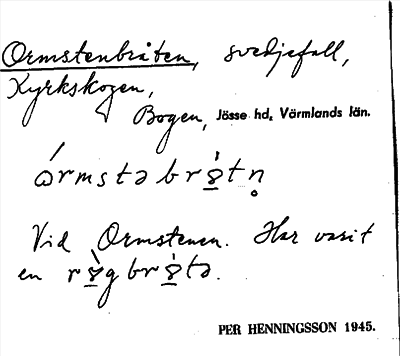 Ormstenbråten, svedjefall,
Kyrkskogen,
Bogen, Jösse hd, Värmlands län.
Vid Ormstenen. Har varit
en
PER HENNINGSSON 1945.